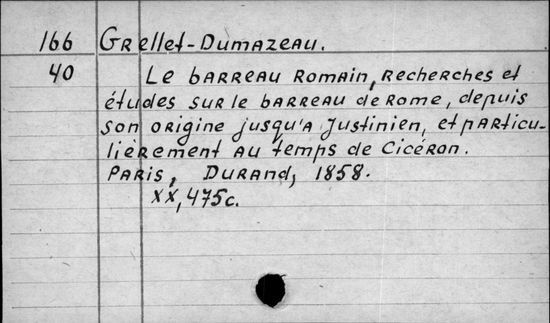 166 Grellet-Dumazeau.
40 Le barreau romain, recherches et
études sur le barreau de Rome, depuis
son origine jusqu'a Justinien, et particu-
lièrement au temps de Cicéron.
Paris, Durand, 1858.
XX, 475c.